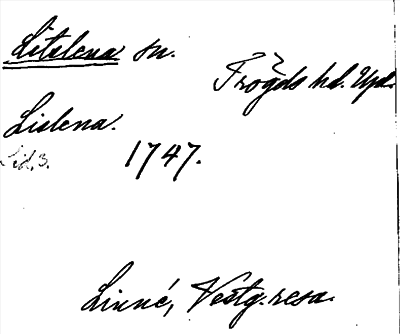 Litslena sn.
Trögds hd. Upl.
Lislena.
Sid. 3.
1747.
Linné, Vestg. resa.